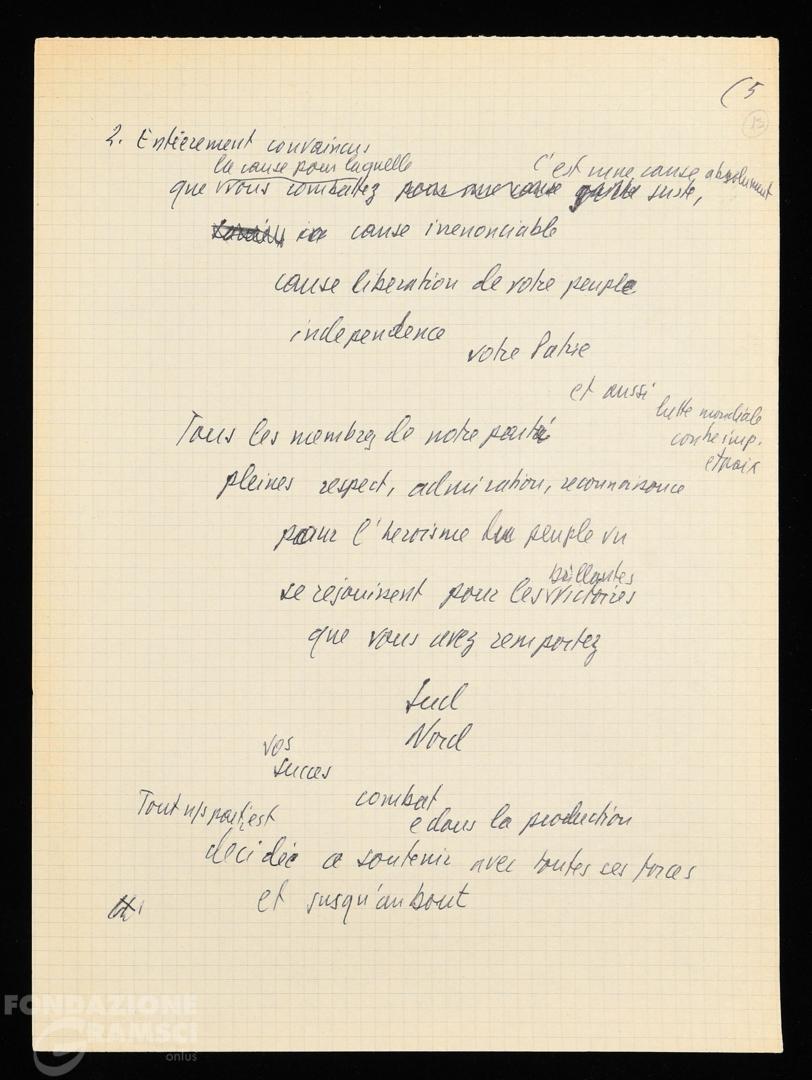 (5
13
2. Entièrement convaincus
la cause pour laquelle
C'est une cause absolument
que vous combattez pour une cause juste,
cause irrenonciable
cause liberation de votre peuple
independence
votre Patrie
et aussi
lutte mondiale
contre imp.
et paix
Tous les membres de notre parti
pleines respect, admiration, reconnaissance
pour l'heroisme du peuple vn
brillantes
se rejouissent pour les victoires
que vous avez remportez
Sud
Nord
vos
succes
combat
e dans la production
Tout n/s parti est
decidé a soutenir avec toutes ses forces
et jusqu'au bout
FONDAZIONE
GRAMSCI
onlus